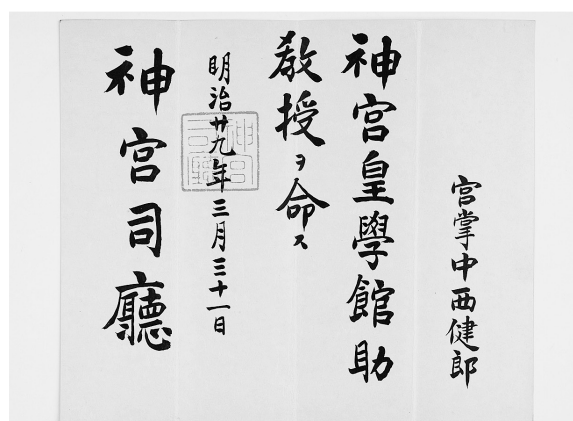 宮掌中西健郎
神宮皇學館助
教授ヲ命ス
明治廿九年三月三十一日
神宮司廳